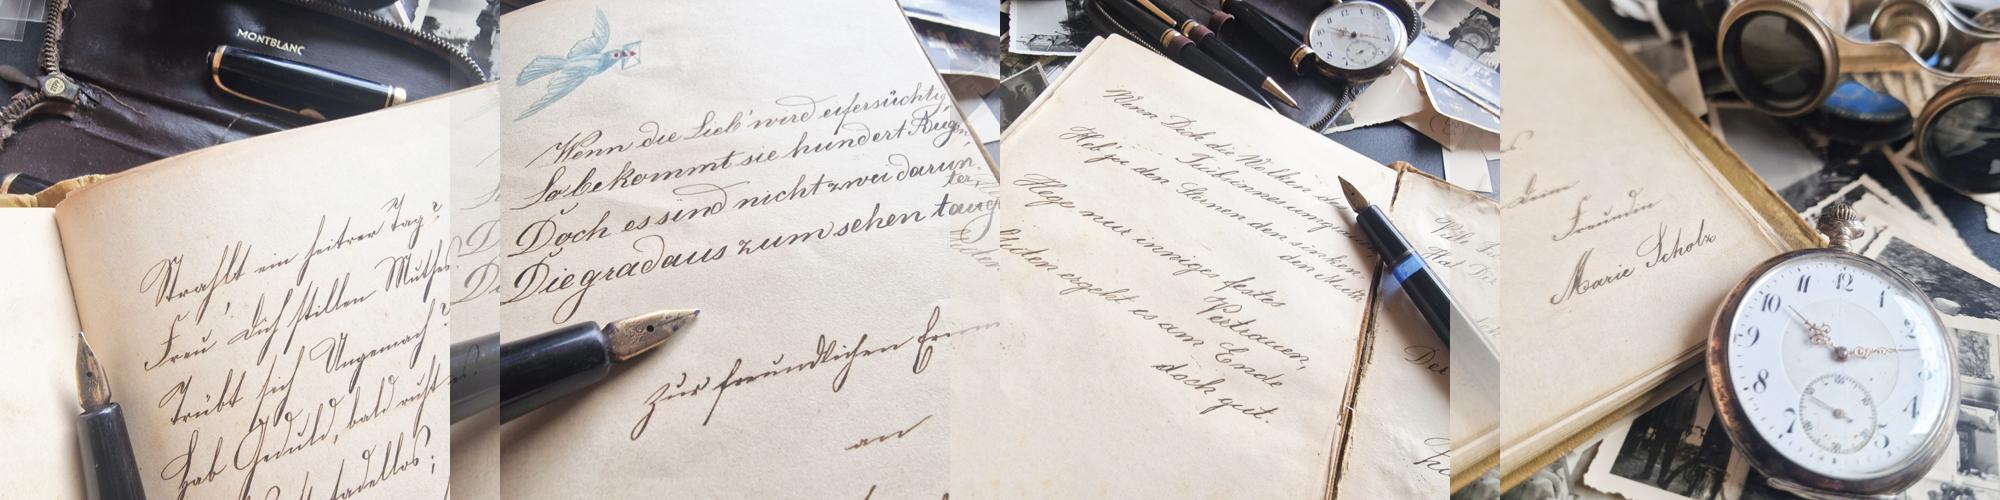 MONTBLANC
Strahlt ein heitrer Tag?
Freu dich stillen Muthes
Trübt sich Ungemach?
Hab Geduld, bald ruht
tadellos;
Wenn die Lieb' wird eifersüchtig
So bekommt sie hundert Aug'n
Doch es sind nicht zwei darun
ter,
Die gradaus zum sehen taug
Zur freundlichen Er
an
Wenn Dich die Wolken
Trüb
Heb' ja den Sternen den sinken
den Muth
Hege nur inniges festes
Vertrauen,
ergeht es am Ende
doch gut.
Der
Freundin
Marie Scholz